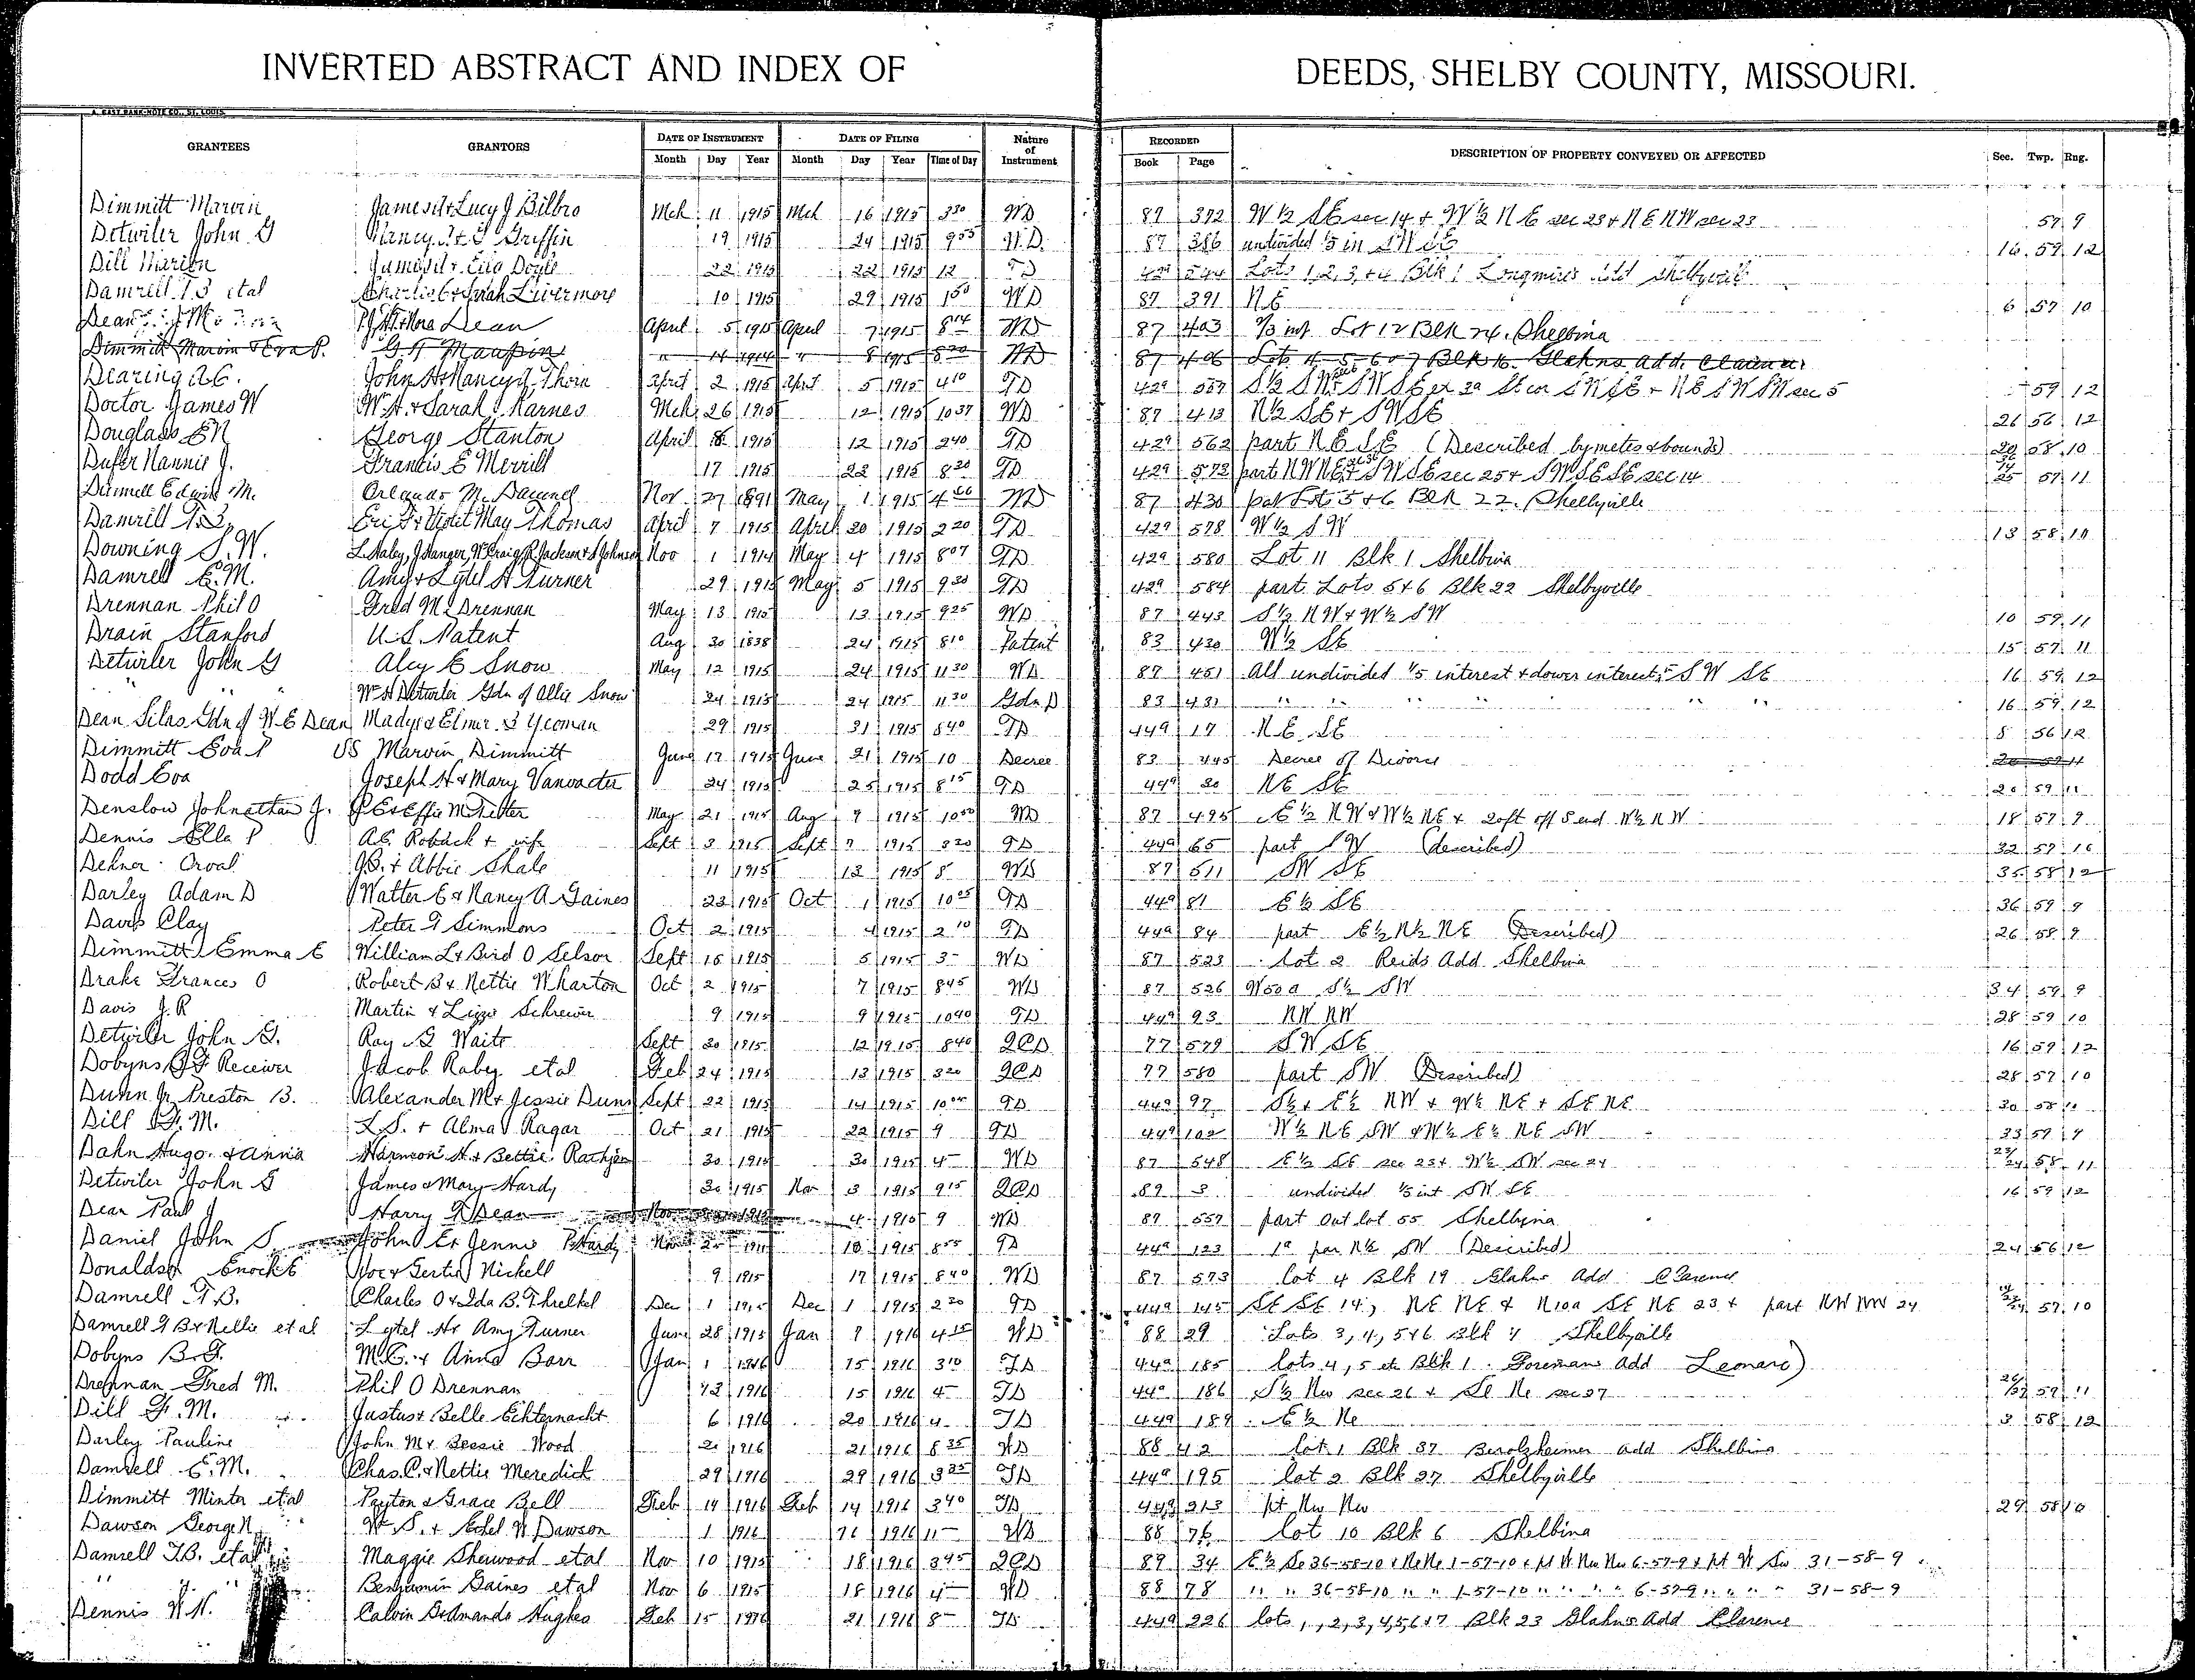 INVERTED ABSTRACT AND INDEX OF DEEDS, SHELBY COUNTY, MISSOURI.
GRANTEES GRANTORS DATE OF INSTRUMENT DATE OF FILING Nature of Instrument RECORDED DESCRIPTION OF PROPERTY CONVEYED OR AFFECTED Sec. Twp. Rng.
Month Day Year Month Day Year Time of Day Book Page
Dimmitt Marvin James H & Lucy J Bilbro Mch 11 1915 Mch 16 1915 3 30 WD 87 372 W ½ SE sec 14 & W ½ N E sec 23 & N E NW sec 23 57 9
Detwiler John G Nancy J & Griffin 19 1915 24 1915 9 55 W.D. 87 386 undivided 1/5 in SW SE 16 59 12
Dill Marion Doyle 22 1915 22 1915 12 TD 429 544 Lots 1, 2, 3, & 4 Blk 1 Longmires Add Shelbyville
Damrell T B etal Charlie & Sarah Livermore 10 1915 29 1915 1 50 WD 87 391 N E 6 57 10
Dean Nora Dean April 5 1915 April 7 1915 8 14 WD 87 403 1/3 int Lot 12 Blk 74. Shelbina
Dimmitt Marvin & Eva P. G H Maupin " 14 1914 " 8 1915 8 20 WD 87 406 Lots 4-5-6 & 7 Blk 16. Glahns add. Clarence
Dearing A C. John H & Nancy J Thorn April 2 1915 April 5 1915 4 10 TD 429 557 S ½ S W SW SE ex 3a SE cor SW SE & NE SW SW sec 5 59 12
Doctor James W Wm H. & Sarah J. Karnes Mch 26 1915 12 1915 10 37 WD 87 413 N ½ SE & SW SE 26 56 12
Douglass E N George Stanton April 8 1915 12 1915 2 40 TD 429 562 part N E S E (Described by metes & bounds) 20 58 10
Dufer Nannie J. Francis E Merrill 17 1915 22 1915 8 20 TD 429 573 part NW NE & SW SE sec 25 & SW SE SE sec 14 14 25 57 11
Dimmell Edwin M. Orlando M. Nov 27 1891 May 1 1915 4 WD 87 430 part Lots 5 & 6 Blk 22. Shelbyville
Damrell T B, Eri F & Violet May Thomas April 7 1915 April 30 1915 2 20 TD 429 578 W ½ S W 13 58 10
Downing S. W. L. Haley, J Stanger, W Craig, R Jackson & S Johnson Nov 1 1914 May 4 1915 8 07 TD 429 580 Lot 11 Blk 1 Shelbina
Damrell E. M. Amy & Lytel H Turner 29 1915 May 5 1915 9 30 TD 429 584 part Lots 5 & 6 Blk 22 Shelbyville
Drennan Phil O Fred M. Drennan May 13 1915 13 1915 9 25 WD 87 443 S ½ N W & W ½ S W 10 59 11
Drain Stanford U.S. Patent Aug 30 1838 24 1915 8 10 Patent 83 430 W ½ SE 15 57 11
Detwiler John G Alcy E Snow May 12 1915 24 1915 11 30 WD 87 451 All undivided 1/5 interest & dower interest in S W S E 16 59 12
" " Wm H Detwiler Gdn of Allie Snow 24 1915 24 1915 11 30 Gdn D 83 431 " " " " 16 59 12
Dean Silas Gdn of W E Dean Madys & Elmer S Yeoman 29 1915 31 1915 8 40 TD 449 17 N E S E 8 56 12
Dimmitt Eva P VS Marvin Dimmitt June 17 1915 June 21 1915 10 Decree 83 445 Decree of Divorce 20 59 11
Dodd Eva Joseph H & Mary Vanvacter 24 1915 25 1915 8 15 TD 449 30 NE SE 20 59 11
Denslow Johnathan J. & Effie M May 21 1915 Aug 9 1915 10 50 WD 87 495 E ½ N W & W ½ NE & 20ft off S end W ½ N W 18 57 9
Dennis Ella P A.E. Roback & wife Sept 3 1915 Sept 7 1915 8 20 TD 449 65 part S W (described) 32 57 10
Dehner Orval J.B. & Abbie Shale 11 1915 13 1915 8 WD 87 511 SW SE 35 58 12
Darley Adam D Walter E & Nancy A Gaines 23 1915 Oct 1 1915 10 05 TD 449 81 E ½ SE 36 59 9
Davis Clay Peter F Simmons Oct 2 1915 4 1915 2 10 TD 449 84 part E ½ N ½ NE (Described) 26 58 9
Dimmitt Emma E William L & Bird O Selsor Sept 15 1915 5 1915 3 - WD 87 523 lot 2 Reids Add Shelbina
Drake Frances O Robert B & Nettie Wharton Oct 2 1915 7 1915 8 45 WD 87 526 W 50 a S ½ SW 34 59 9
Davis J. R Martin & Lizzie Schreiver 9 1915 9 1915 10 40 TD 449 93 NW NW 28 59 10
Detwiler John G. Ray G Waits Sept 30 1915 12 1915 8 40 QCD 77 579 S W S E 16 59 12
Dobyns B F Receiver Jacob Raby etal Feb 24 1915 13 1915 3 20 QCD 77 580 part SW (Described) 28 57 10
Dunn Jr Preston B. Alexander M & Jessie Dunn Sept 22 1915 14 1915 10 TD 449 97 S ½ & E ½ NW & W ½ NE & SE NE 30 58 10
Dill F. M. L. S. & Alma V Ragar Oct 21 1915 22 1915 9 TD 449 102 W ½ N E SW & W ½ E ½ NE SW 33 59 9
Dahn Hugo & Annia Harmon H. & Bettie Rathjen 30 1915 30 1915 4 - WD 87 548 E ½ SE sec 23 & W ½ SW sec 24 23/24 58 11
Detwiler John G James & Mary Hardy 30 1915 Nov 3 1915 9 15 QCD 89 3 undivided 1/5 int SW SE 16 59 12
Dean Paul J Harry F Dean Nov 1915 4 1915 9 WD 87 557 part Out lot 55 Shelbyina
Daniel John S John E & Jennie P Hardy Nov 10 1915 8 55 TD 449 123 1a par N ½ SW (Described) 24 56 12
Donaldson Enoch E Joe & Gertie Nickell 9 1915 17 1915 8 40 WD 87 573 lot 4 Blk 19 Glahns Add Clarence
Damrell T. B. Charles O & Ida B. Threlkel Dec 1 1915 Dec 1 1915 2 30 TD 449 145 SE SE 14, NE NE & N10a SE NE 23 & part NW NW 24 57 10
Damrell T B & Nellie et al Lytel H & Amy Turner June 28 1915 Jan 7 1916 4 15 WD 88 29 Lots 3, 4, 5 & 6 Blk 4 Shelbyville
Dobyns B. F. M. C. & Anna Barr Jan 1 1916 15 1916 3 10 TD 449 185 lots 4, 5 Blk 1. Foremans add Leonard
Drennan Fred M. Phil O Drennan 13 1916 15 1916 4 - TD 449 186 S ½ Nw sec 26 & Se Ne sec 27 26/27 59 11
Dill F. M. Justus & Belle Echternacht 6 1916 20 1916 4 - TD 449 189 E ½ Ne 3 58 12
Darley Pauline John M & Bessie Wood 20 1916 21 1916 8 35 WD 88 42 lot 1 Blk 37 Berolzheimer add Shelbina
Damrell E. M. Chas. C. & Nettie Meredick 29 1916 29 1916 3 35 TD 449 195 lot 2 Blk 27 Shelbyville
Dimmitt Minter etal Payton & Grace Bell Feb 14 1916 Feb 14 1916 3 40 TD 449 213 pt Nw Nw 29 58 10
Dawson George N W. S. & Ethel W Dawson 1 1916 16 1916 11 - WD 88 76 lot 10 Blk 6 Shelbina
Damrell T.B. etal Maggie Sherwood etal Nov 10 1915 18 1916 3 45 QCD 89 34 E ½ Se 36-58-10 & Ne Ne 1-57-10 & pt W Nw Nw 6-57-9 & pt W Sw 31-58-9
" " Benjamin Gaines etal Nov 6 1915 18 1916 4 - WD 88 78 " " 36-58-10 " " 1-57-10 " " " " 6-57-9 " " " " 31-58-9
Dennis W. N. Calvin B & Amanda Hughes Feb 15 1916 21 1916 8 - TD 449 226 lots 1, 2, 3, 4, 5, 6 & 7 Blk 23 Glahns Add Clarence